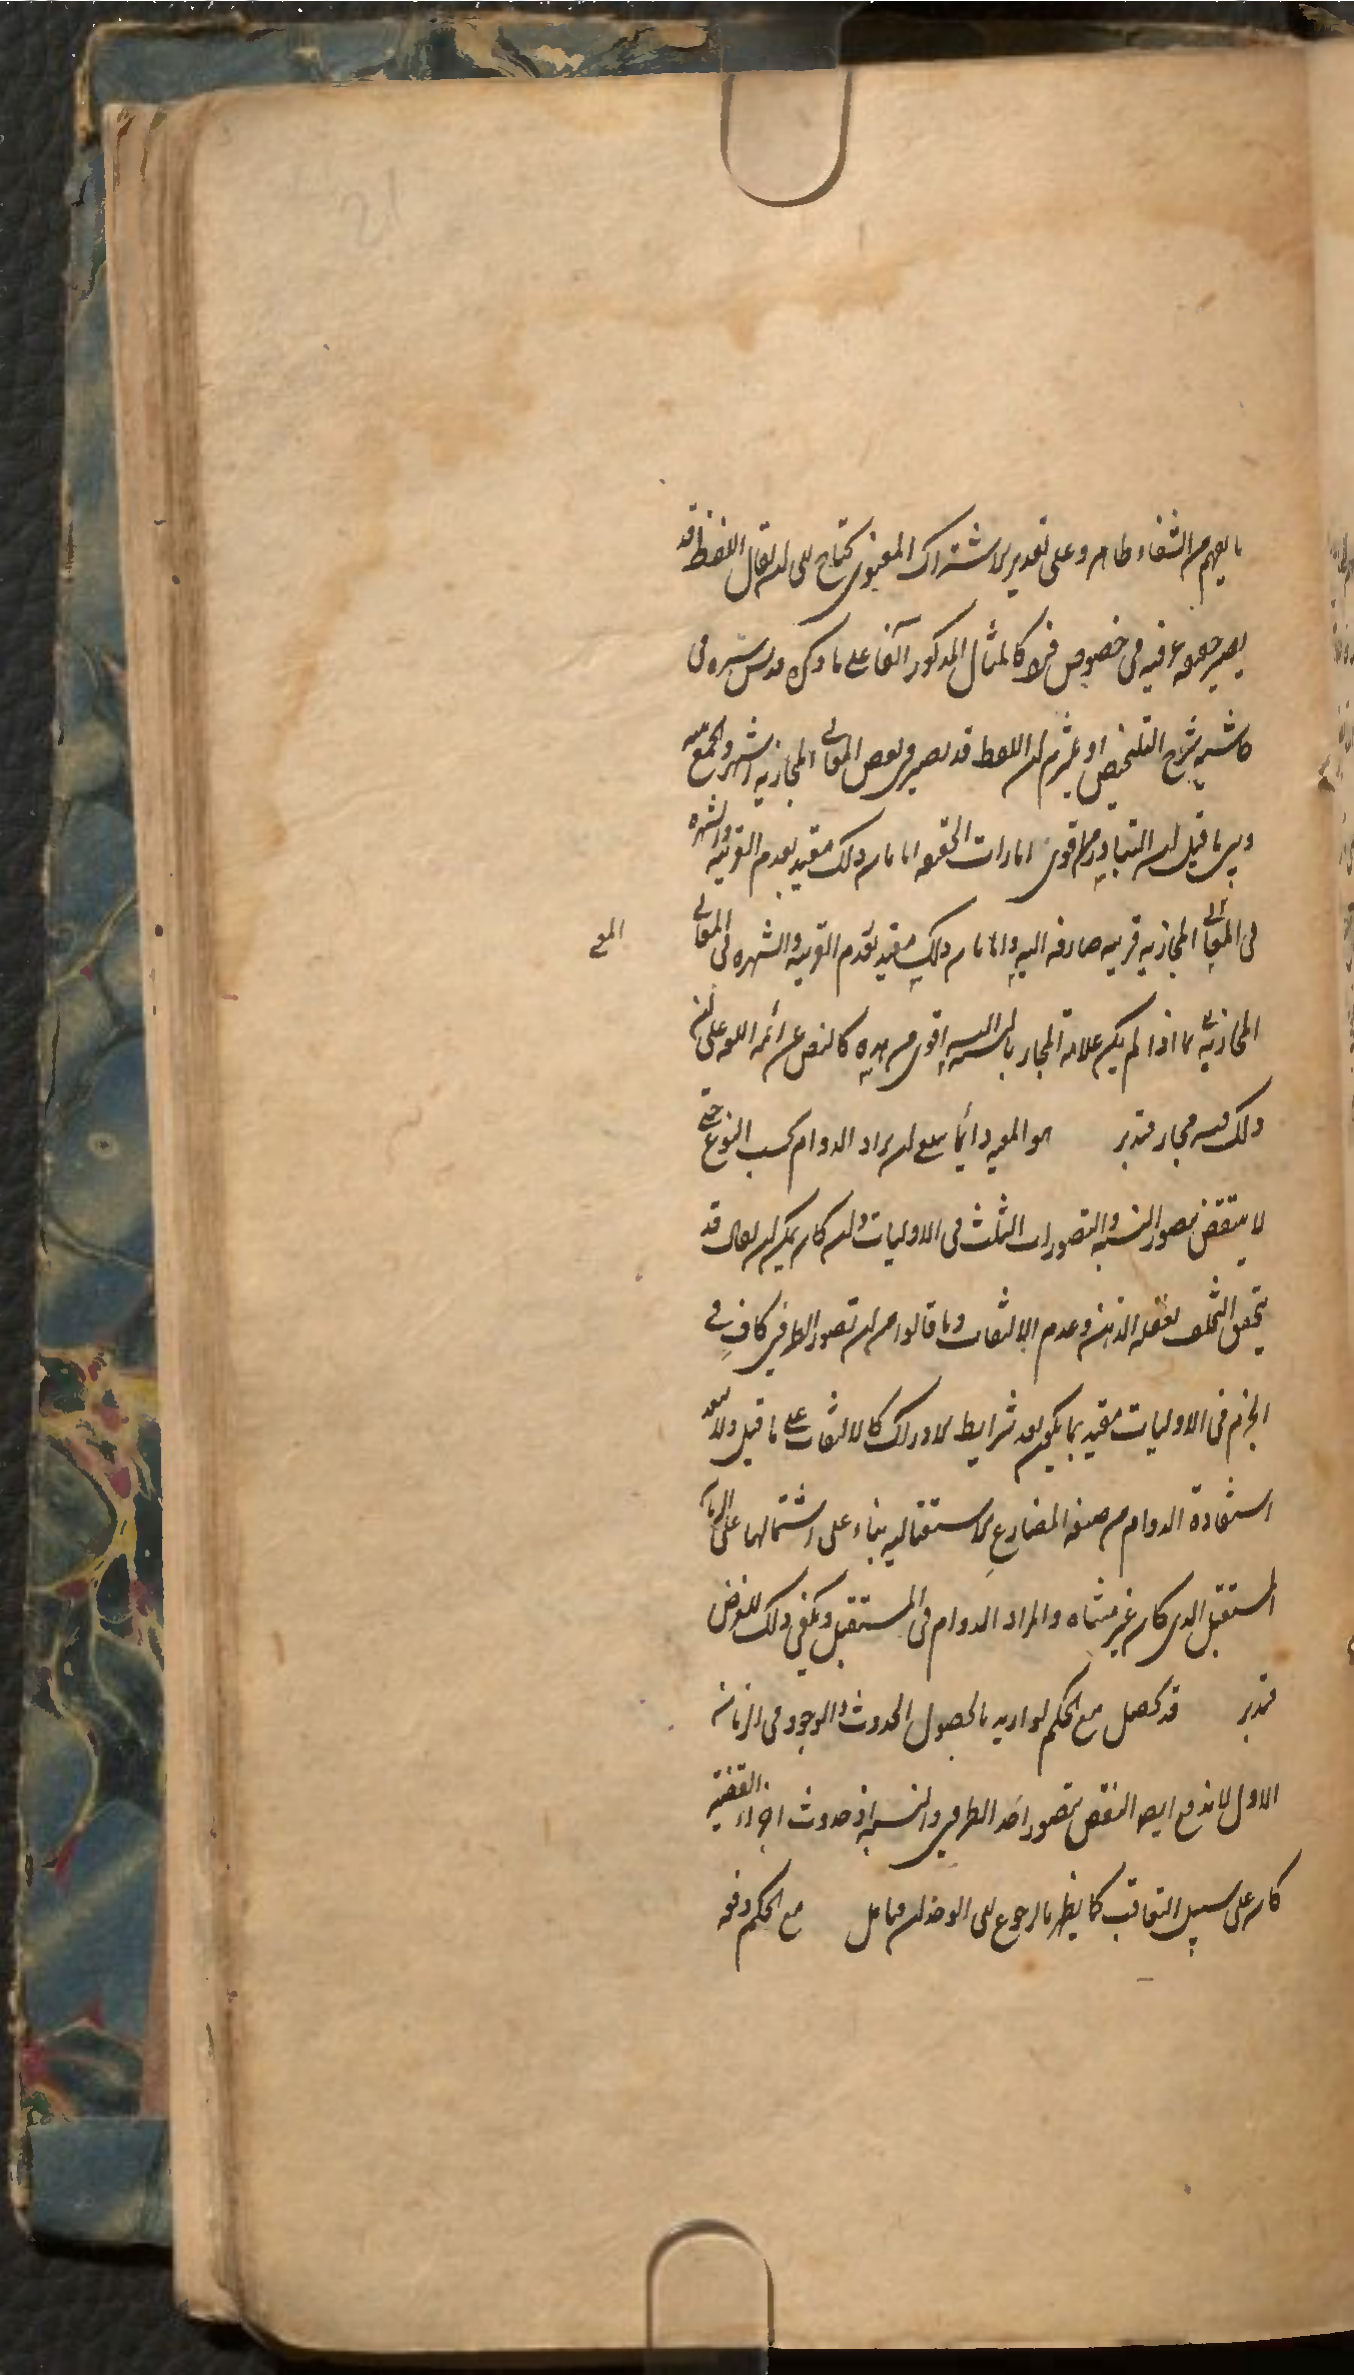 ما يفهم من الشفاء ظاهر وعلى تقدير الاشتراك المعنوى يحتاج الى ان يقال اللفظ قد
يصير حقيقه عرفيه فى خصوص فرد كالمثال المذكور آنفا على ما ذكره قدس سره فى
حاشيه شرح التلخيص او يلتزم ان اللفظ قد يصير فى بعض المعانى المجازيه اشهر
وما قيل ان التبادر من اقوى امارات الحقيقه انما يتم ذلك مقيد بعدم القرينه والشهره
فى المعانى المجازيه قرينه صارفه اليه وانما يتم ذلك مقيد بعدم القرينه والشهره فى المعانى
المجازيه اذا لم يكن علامة المجاز بالنسبه اقوى من هذه كالنص عن ائمه اللغه على ان
ذلك فيه مجاز فتدبر هو المعيه دائما يعنى ان يراد الدوام بحسب النوع حتى
لا ينتقض بتصور النسبه والتصورات الثلث فى الاوليات وان كان يمكن ان يقال قد
يتحقق التخلف لغفله الذهن وعدم الالتفات وما قالوا من ان تصور الطرفين كاف فى
الجزم فى الاوليات مقيد بما يكون بعد شرايط الادراك كالالتفات على ما قيل ولا يبعد
استفادة الدوام من صيغه المضارع الاستقباليه بناء على اشتمالها على الزمان
المستقبل الذى كان غير متناه والمراد الدوام فى المستقبل ويكفى ذلك للغرض
فتدبر قد يحصل مع الحكم لو اريد بالحصول الحدوث والوجود فى الزمان
الاول لاندفع ايضا النقض بتصور احد الطرفين والنسبه اذ حدوث اجزاء القضيه
كان على سبيل التعاقب كما يظهر بالرجوع الى الوجدان فتامل مع الحكم دفعه